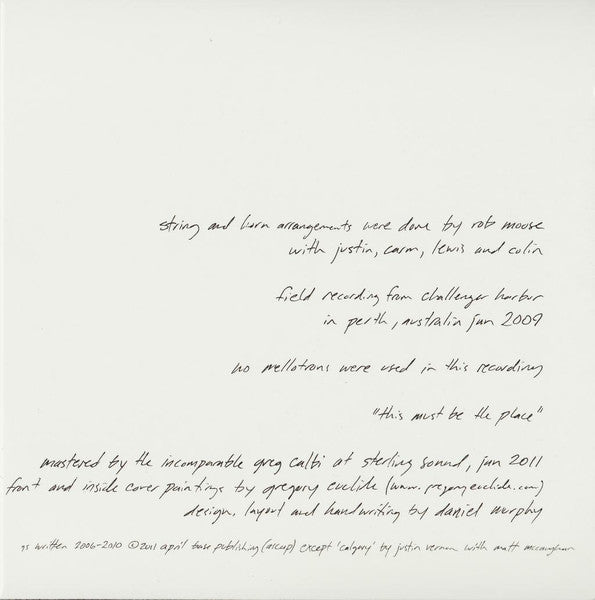 string and horn arrangements were done by rob moose
with justin, carm, lewis and colin
field recording from challenger harbor
in perth, australia jan 2009
no mellotrons were used in this recording
"this must be the place"
mastered by the incomparable greg calbi at sterling sound, jan 2011
front and inside cover paintings by gregory euclide (www.gregoryeuclide.com)
design, layout and handwriting by daniel murphy
written 2006-2010 ©2011 april base publishing (ascap) except 'calgary' by justin vernon with matt mccaughan